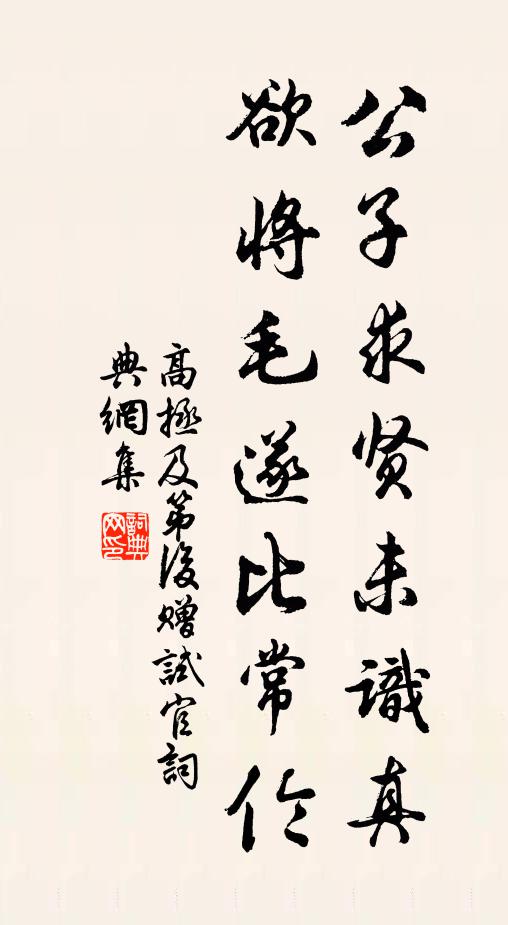 公子求贤未識真
欲將毛遂比常伦
高拯及第後赠試官詞
典網集
詞典
网印